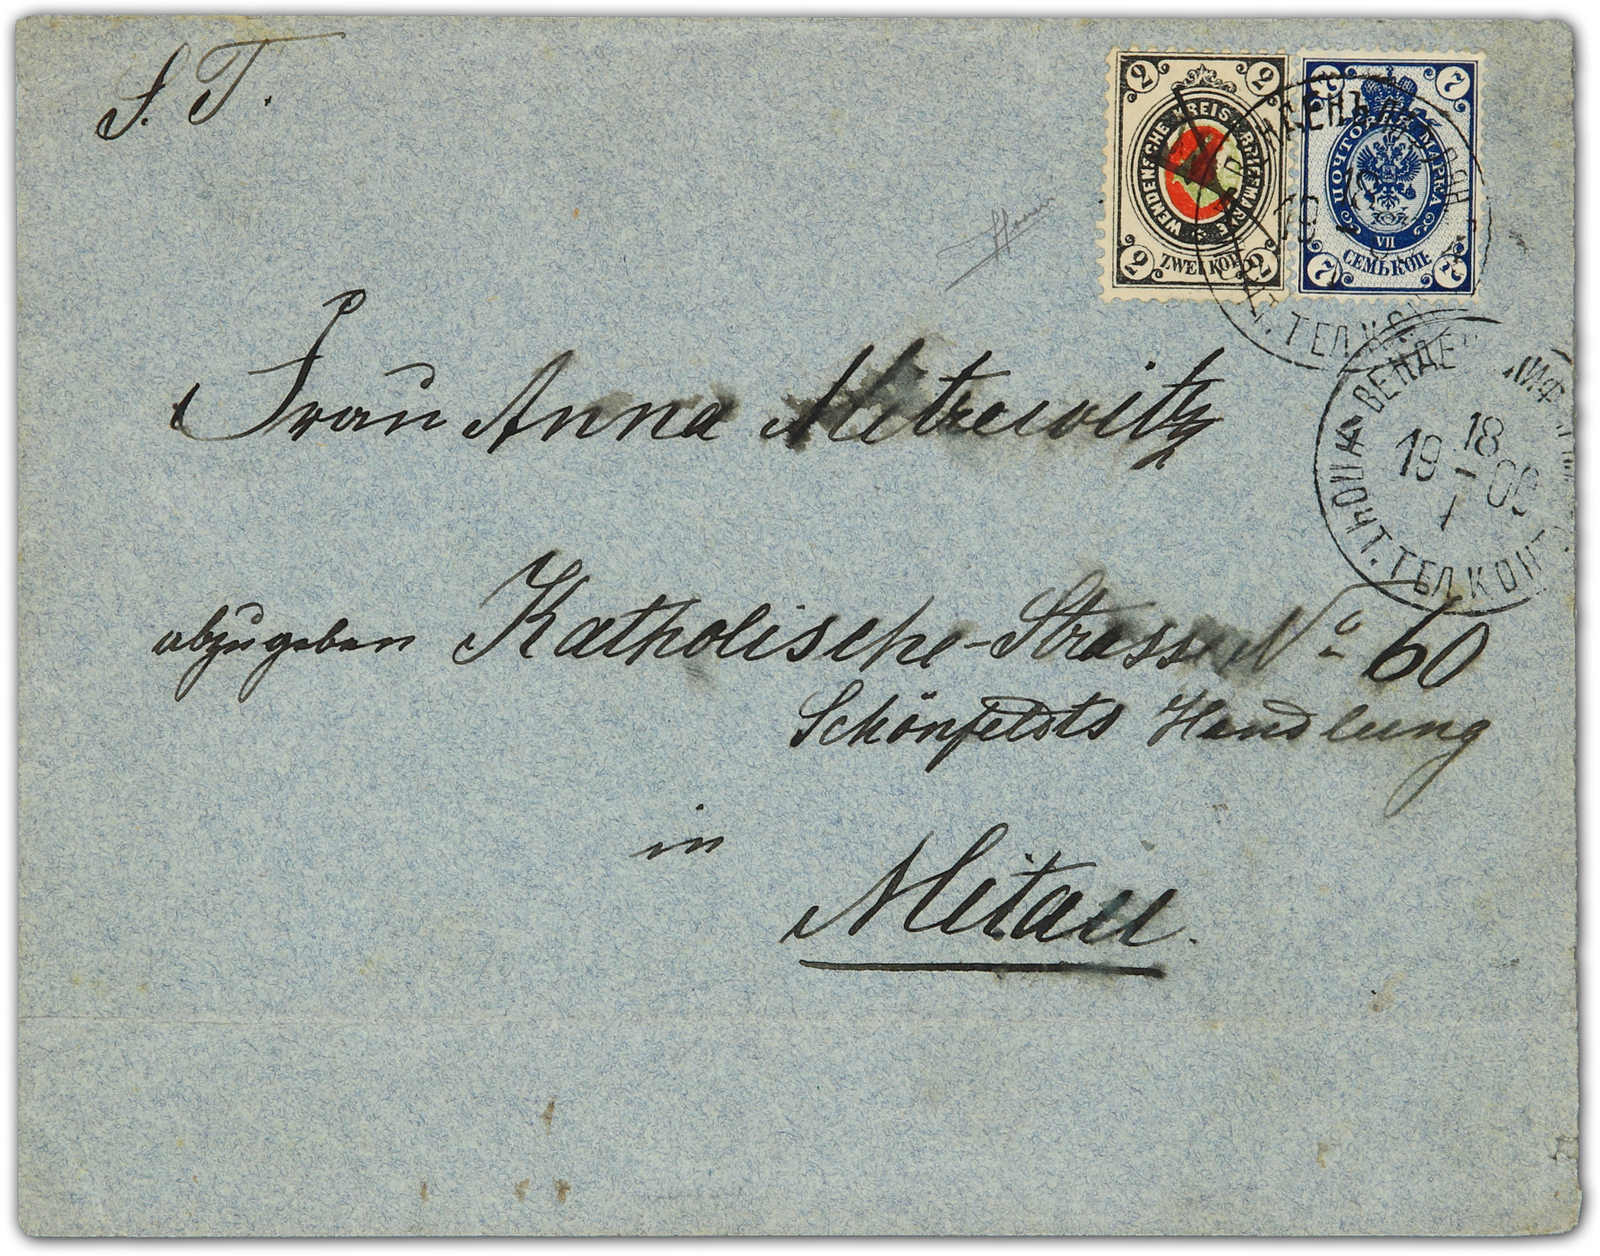 S. T.
2 2
WENDENSCHE KREIS BRIEFMARKE
ZWEI KOP.
2 2
7 7
ПОЧТОВАЯ МАРКА
VII
СЕМЬ КОП.
7 7
18
19 - 09
1
ПОЧТ. ТЕЛ. КОНТ.
Frau Anna Mitrewitz
abzugeben Katholische-Strasse No 60
Schönfeldts Handlung
in
Mitau.